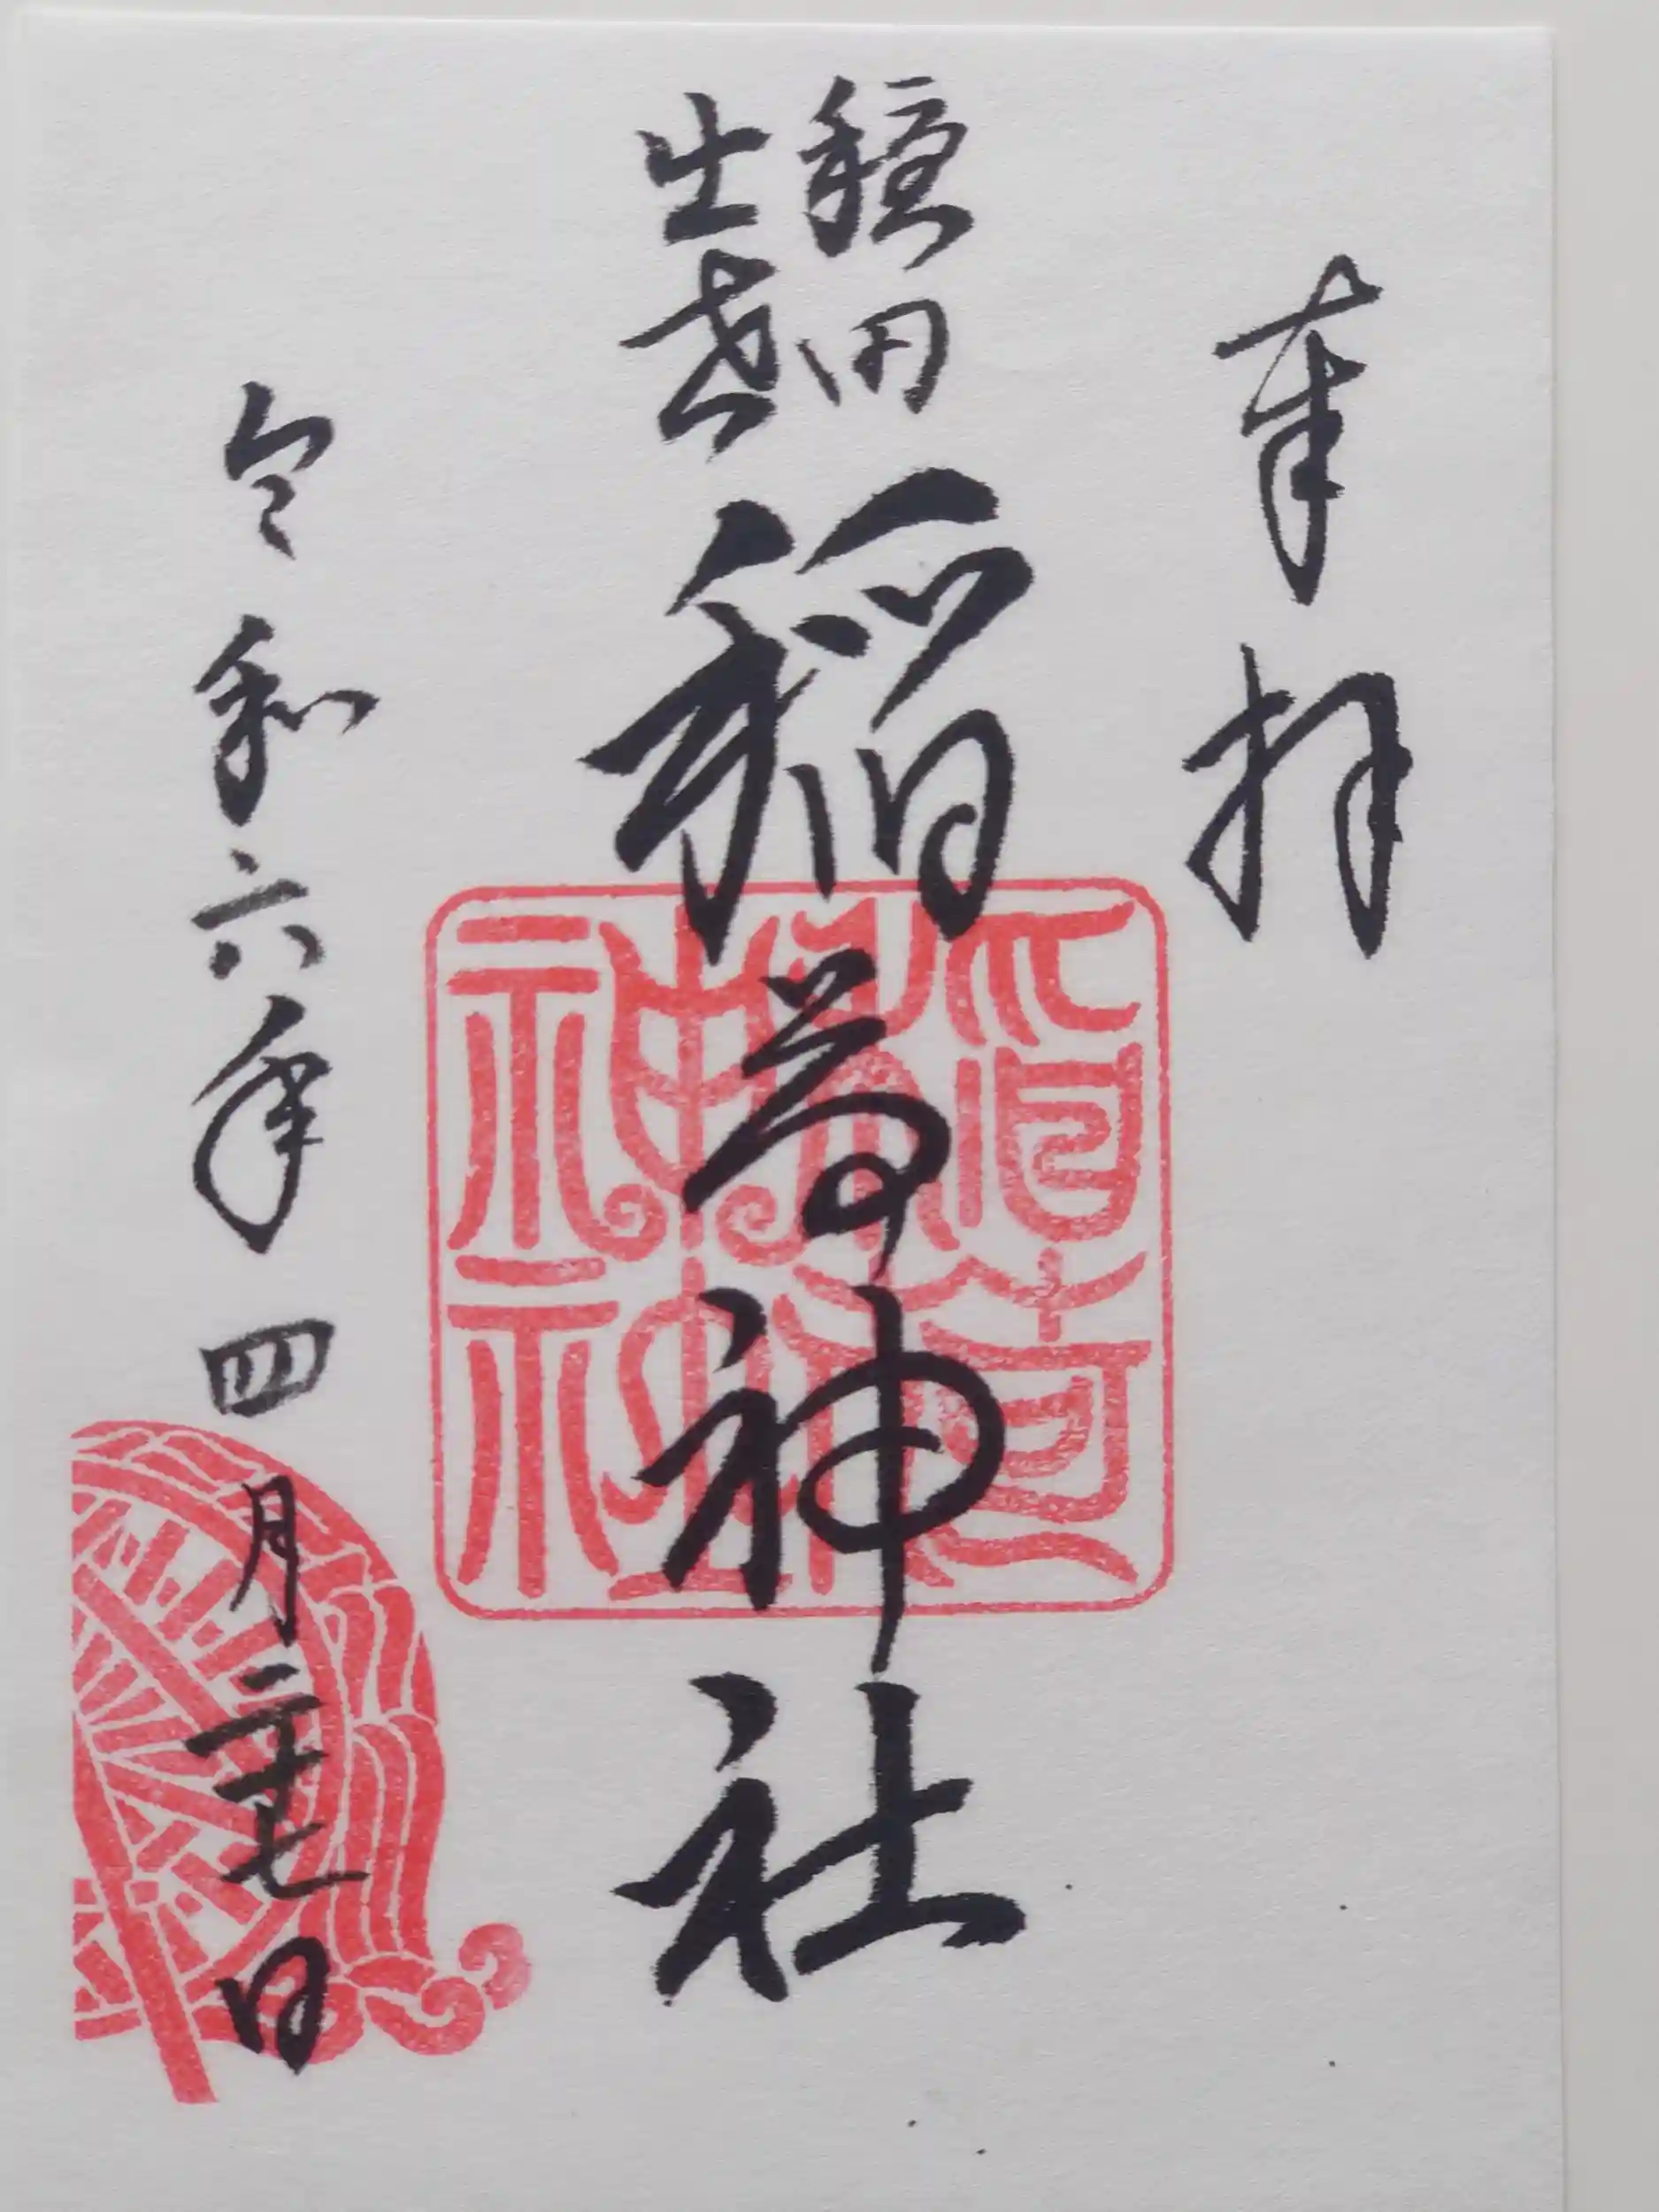 奉拝
出世
稲荷神社
令和六年四月二十七日
稲荷
神社